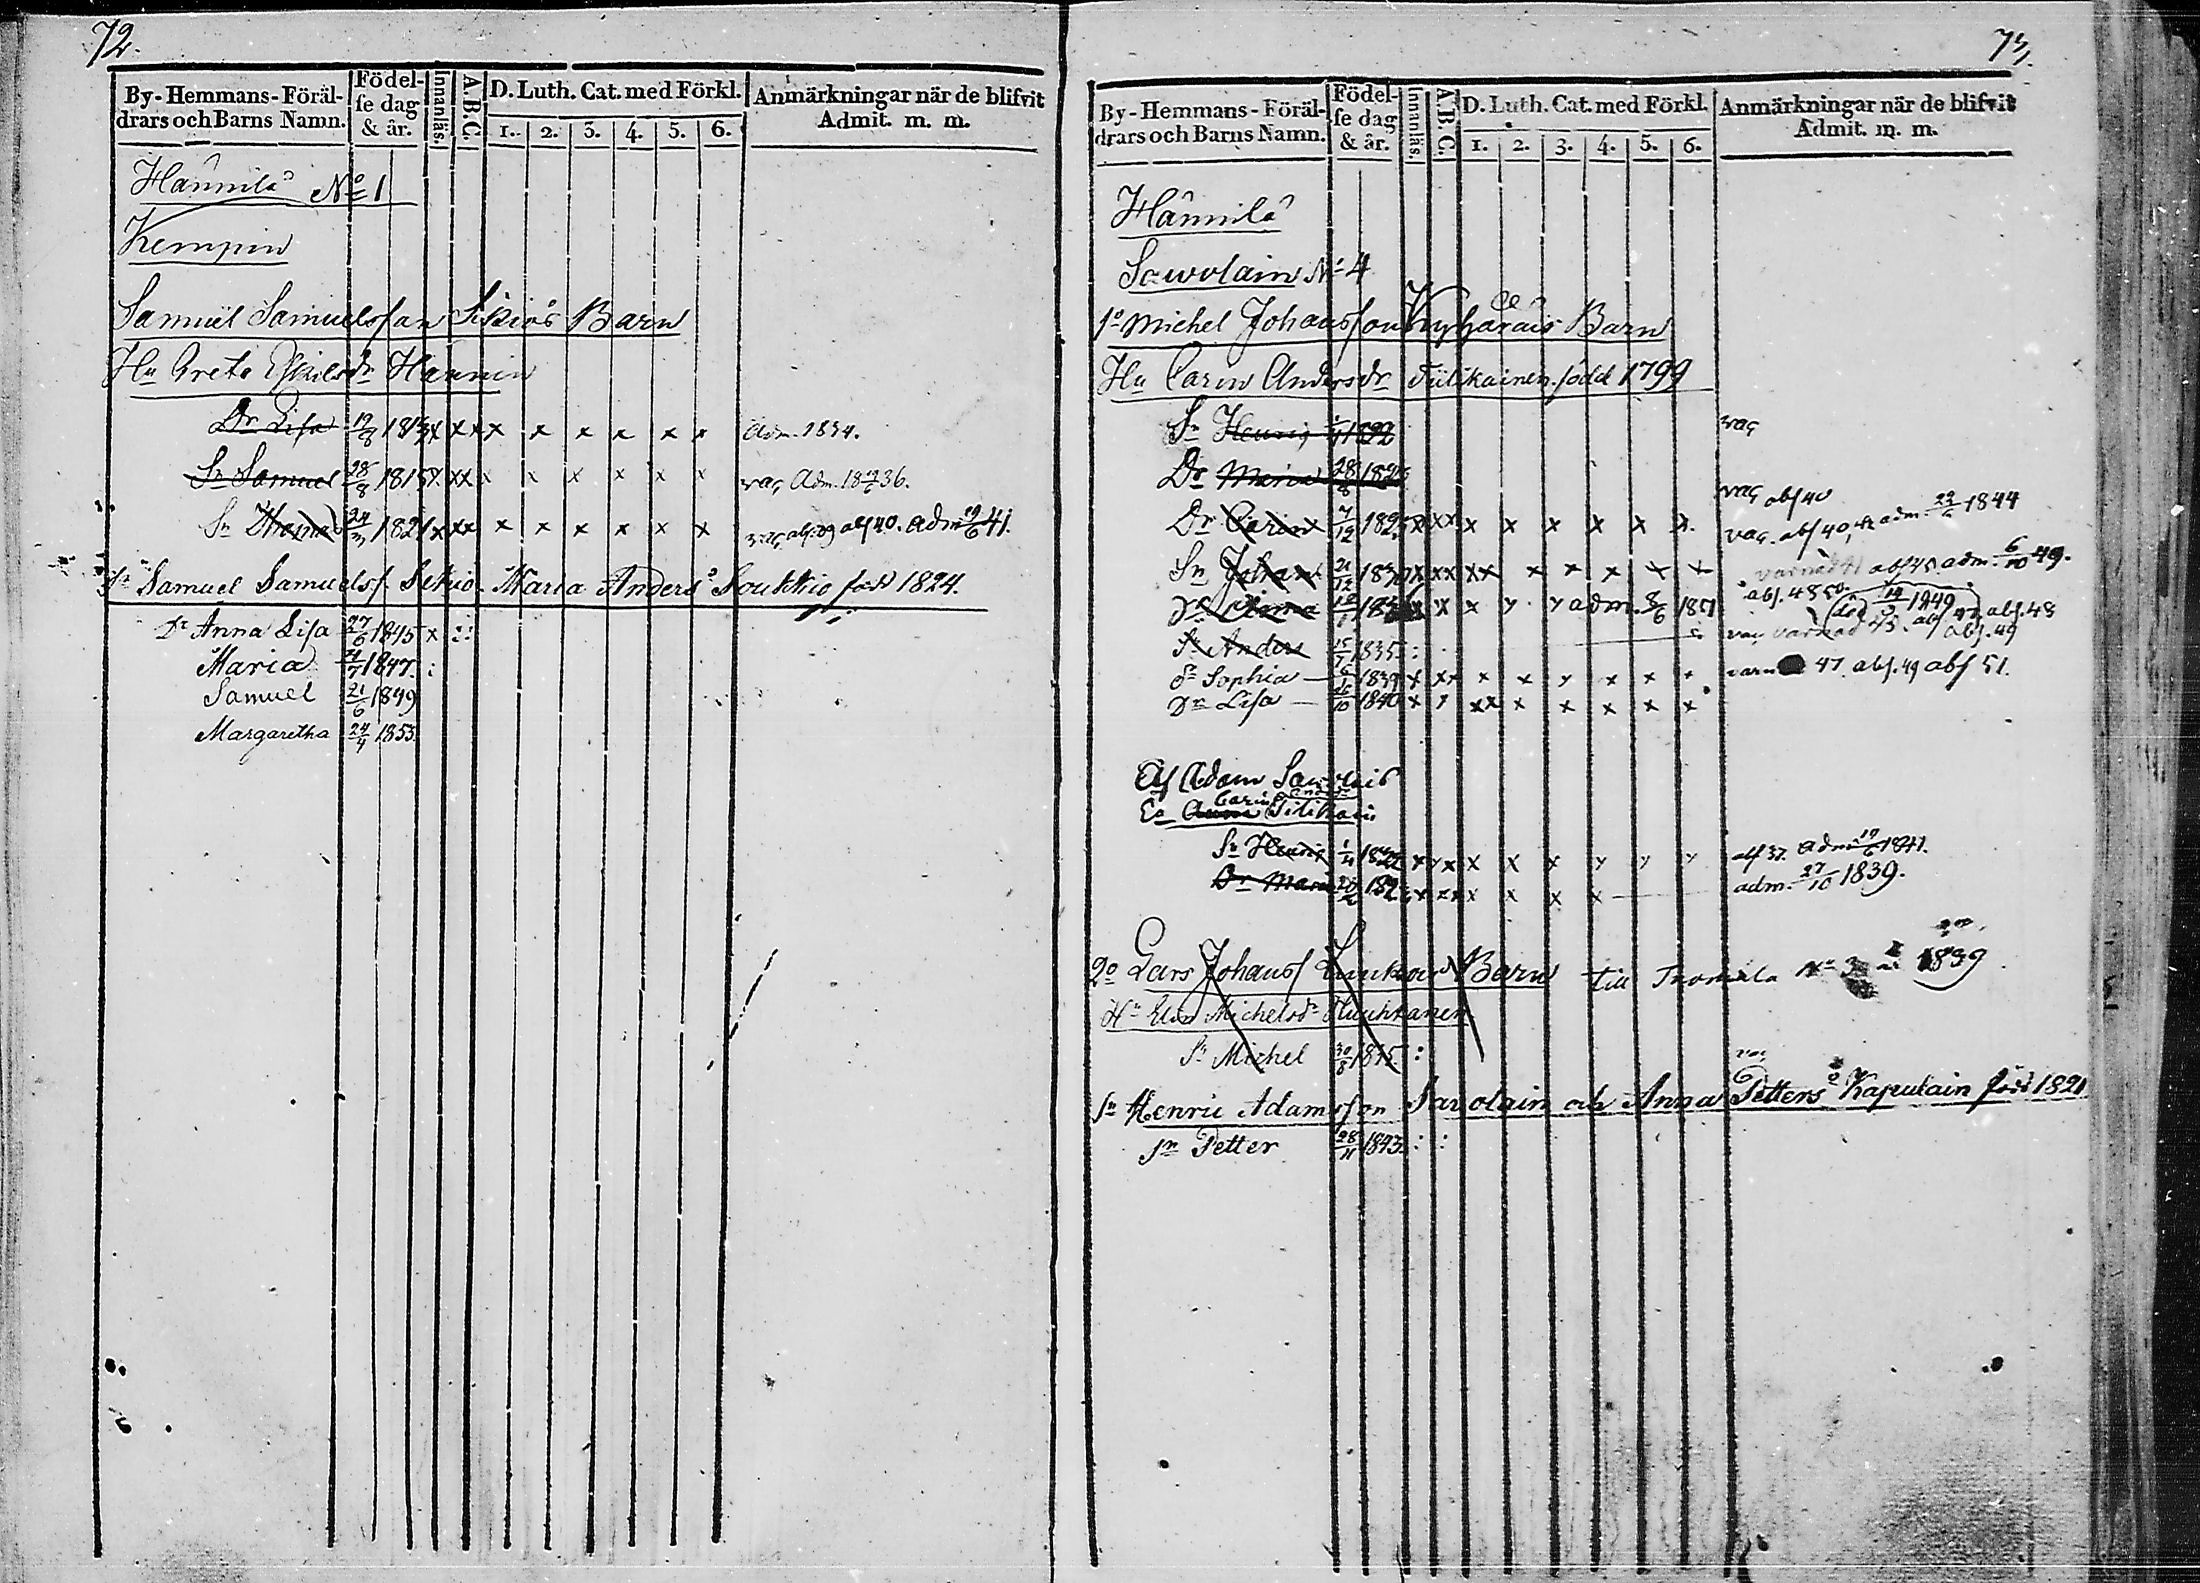 72.
By-Hemmans-Föräl-
drars och Barns Namn.
Födel-
se dag
& år.
Innanläs.
A.B.C.
D. Luth. Cat. med Förkl.
1. 2. 3. 4. 5. 6.
Anmärkningar när de blifvit
Admit. m. m.
Hannila No 1
Kempin
Samuel Samuelsson Sikiös Barn
Hu Greta Eskilsdr Hannin
Dr Lisa 19/8 181 x x x x x x x x x Adm. 1834.
Sn Samuel 28/8 1815 x x x x x x x x x vac Adm. 18 36.
Sn Thomas 24 1821 x x x x x x x x x vac abs. 39 abs 40. adm 19/6 41.
Sn Samuel Samuelss. Sikiö. Maria Anders Soukkio född 1824.
Dr Anna Lisa 27/6 1845 x : :
Maria 1847. :
Samuel 21/6 1849
Margaretha 24/4 1853.
73.
By-Hemmans-Föräl-
drars och Barns Namn.
Födel-
se dag
& år.
Innanläs.
A.B.C.
D. Luth. Cat. med Förkl.
1. 2. 3. 4. 5. 6.
Anmärkningar när de blifvit
Admit. m. m.
Hannila
Sawolain No 4
1o Michel Johansson Barn
Hu Carin Andersdr Tiilikainen född 1799
Sn Henric 1822 vac
Dr Maria 28/8 182 vac abs 40
Dr Carin 7/12 182 x x x x x x x x x vac. abs 40, adm. 1844
Sn Johan 21/12 1830 x x x x x x x x x abs 45. adm. 6/10 49.
abs. 48 50
Dr Anna 18 x x x y y adm. 8/6 1851 1849 abs. 48
Sn Anders 15/7 1835 : vac varnad abs. 49
Dr Sophia 1839 x x x x x y x x x varn 47. abs. 49 abs 51.
Dr Lisa 26/10 1840 x y x x x x x x x
Af Adam Savolais
Ea Carin Andersdr Tilikain
Sn Henric 1/4 1822 x y x x x x y y y abs 37. adm 19/6 1841.
Dr Maria 182 x x x x x x x adm. 27/10 1839.
2o Lars Johanss Barn till Tromila No 3 1839
Hu Elin Michelsdr Huuhtanen
Sn Michel 30/8 1835 :
vac
Sn Henric Adamsson Savolain och Anna Petters Kapulain född 1821
Sn Petter 28/11 1843. : :